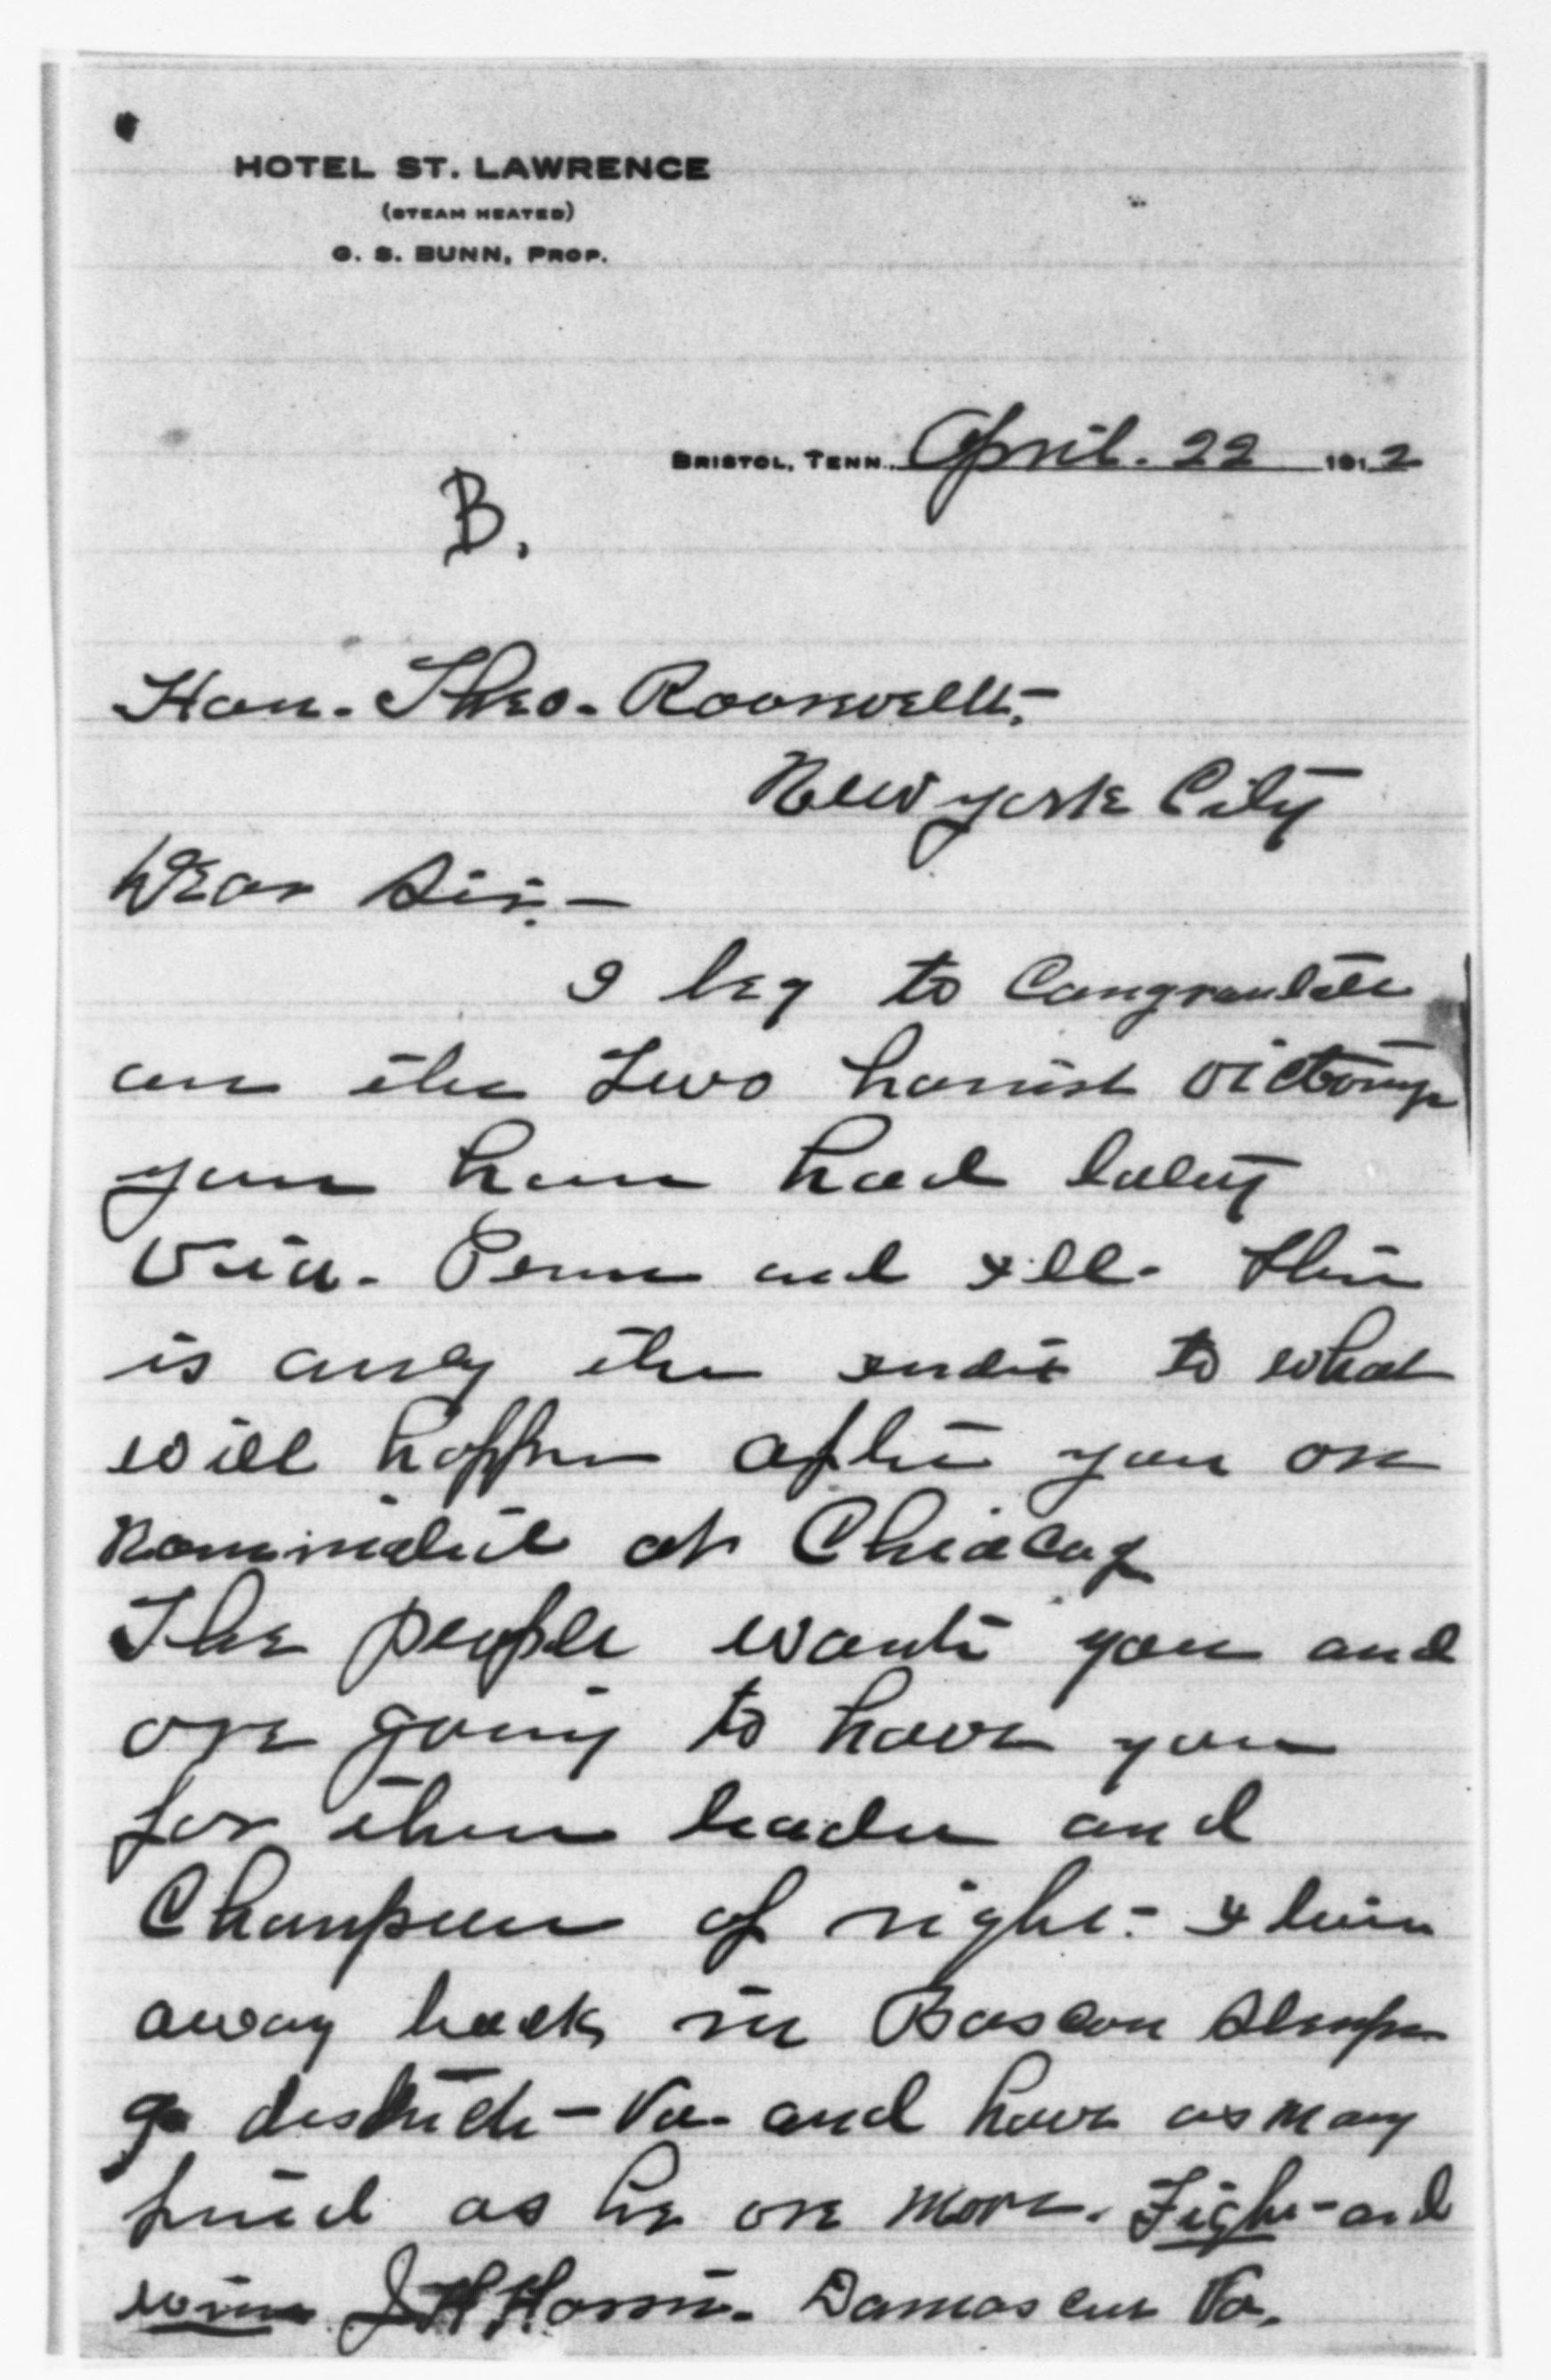 HOTEL ST. LAWRENCE
(STEAM HEATED)
G. S. BUNN, PROP.
BRISTOL, TENN., April. 22 1912
B.
Hon. Theo. Roosevelt,
New York City
Dear Sir:—
I beg to Congraulate
on the two honist victorys
you have had lately
Via. Penn and Ill. this
is only the to what
will happen after you are
nominated at Chicago
The people wants you and
are going to have you
for their leader and
Champion of right. I live
away back in Bascom Slemp
9 district - Va. and have as many
friend as he or more. Fight and
win J H Harris. Damascus Va.